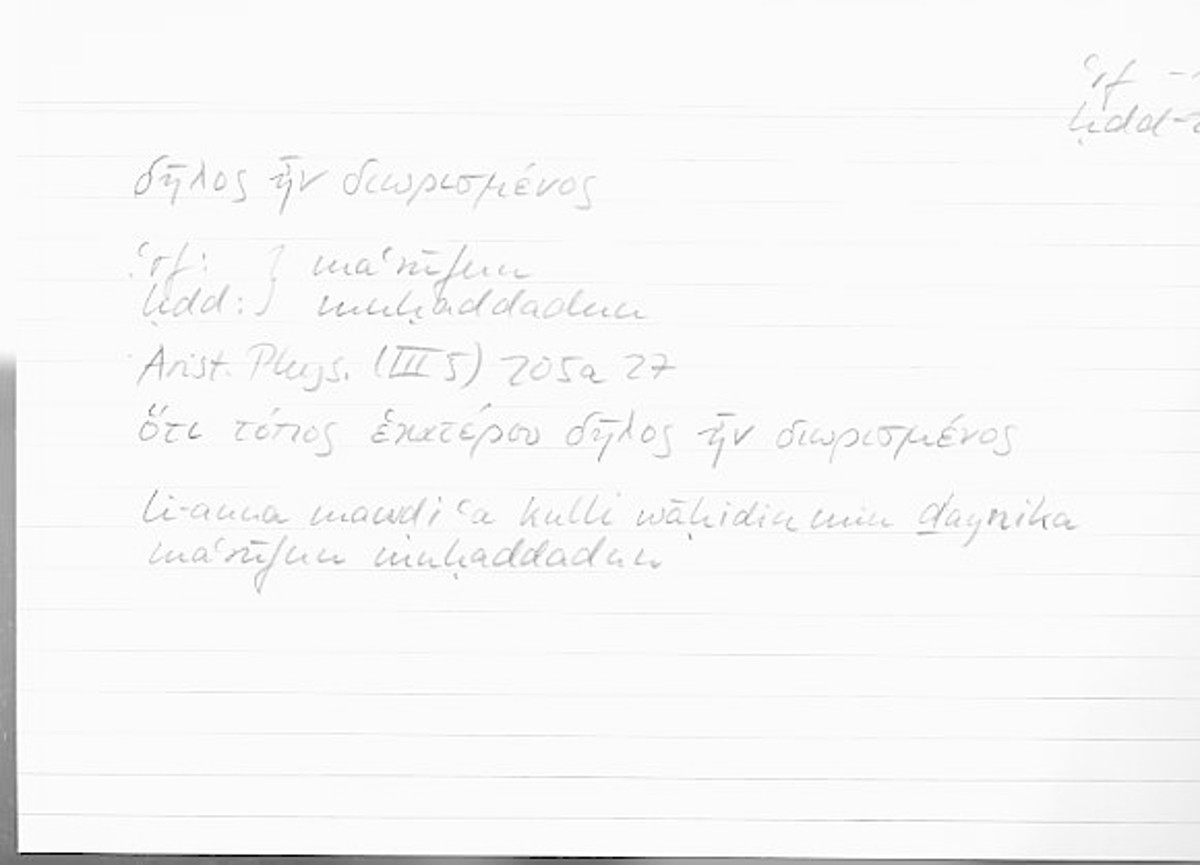 ʿrf
ḥdd
δῆλος ἦν διωρισμένος
ʿrf: } maʿrūfun
ḥdd: } muḥaddadun
Arist. Phys. (III 5) 205a 27
ὅτι τόπος ἑκατέρου δῆλος ἦν διωρισμένος
li-anna mawḍiʿa kulli wāḥidin min ḏaynika
maʿrūfun muḥaddadun